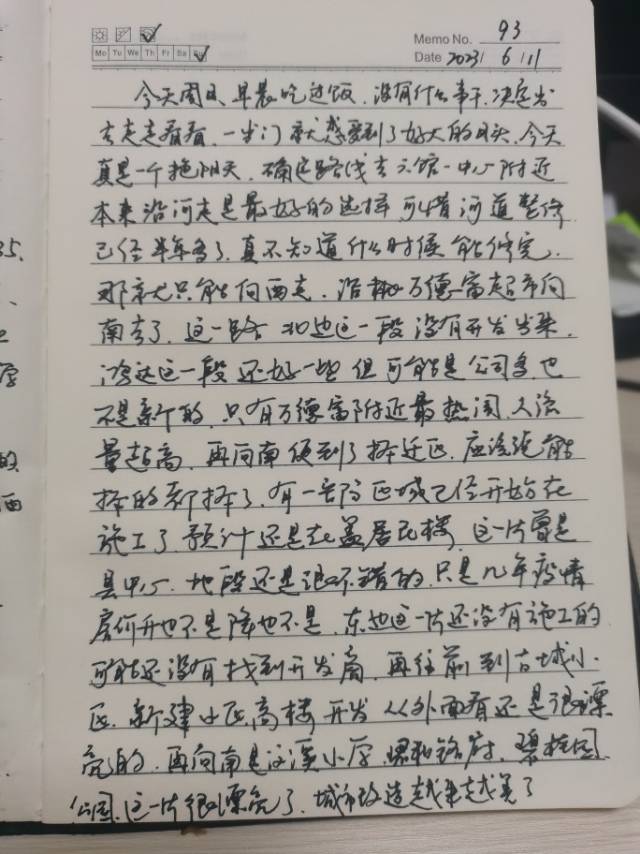 Memo No. 93
Mo Tu We Th Fr Sa Su
Date 2023/ 6 / 11
今天周日,早晨吃过饭,没有什么事干,决定出
去走走看看,一出门就感受到了好大的日头,今天
真是一个艳阳天,确定路线去 馆-中心附近
本来沿河走是最好的选择 可惜河道整修
已经半年多了,真不知道什么时候能修完,
那就只能向西走,沿 万德富超市向
南去了,这一路 北边这一段没有开发出来,
鸿达这一段还好一些 但可能是公司多,也
不是新个的,只有万德富附近最热闹,人流
量超高,再向南便到了拆迁区,应该说能
拆的都拆了,有一部份区域已经开始在
施工了,预计还是在盖居民楼,这一片曾是
县中心,地段还是很不错的,只是几年疫情
房价升也不是降也不是,东边这一片还没有施工的
可能还没有找到开发商,再往前到古城小
区,新建小区,高楼 开发 从外面看还是很漂
亮的,再向南是 溪小学 府,碧桂园
公园,这一片很漂亮了,城市改造越来越美了
35.
的
西